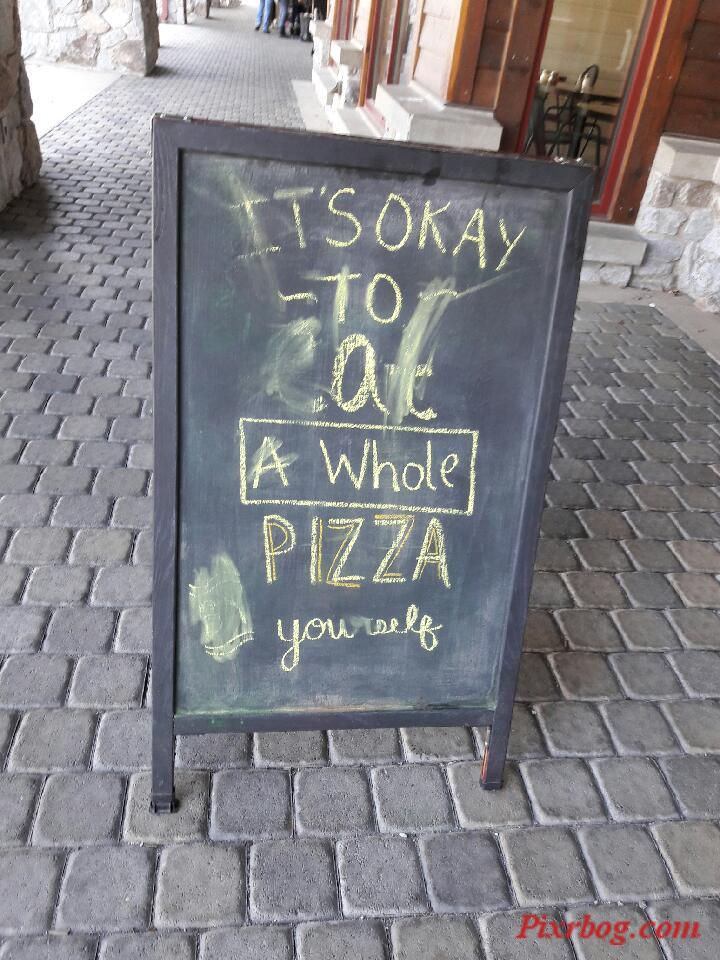 IT'S OKAY
TO
eat
A Whole
PIZZA
yourself
Pixrbog.com